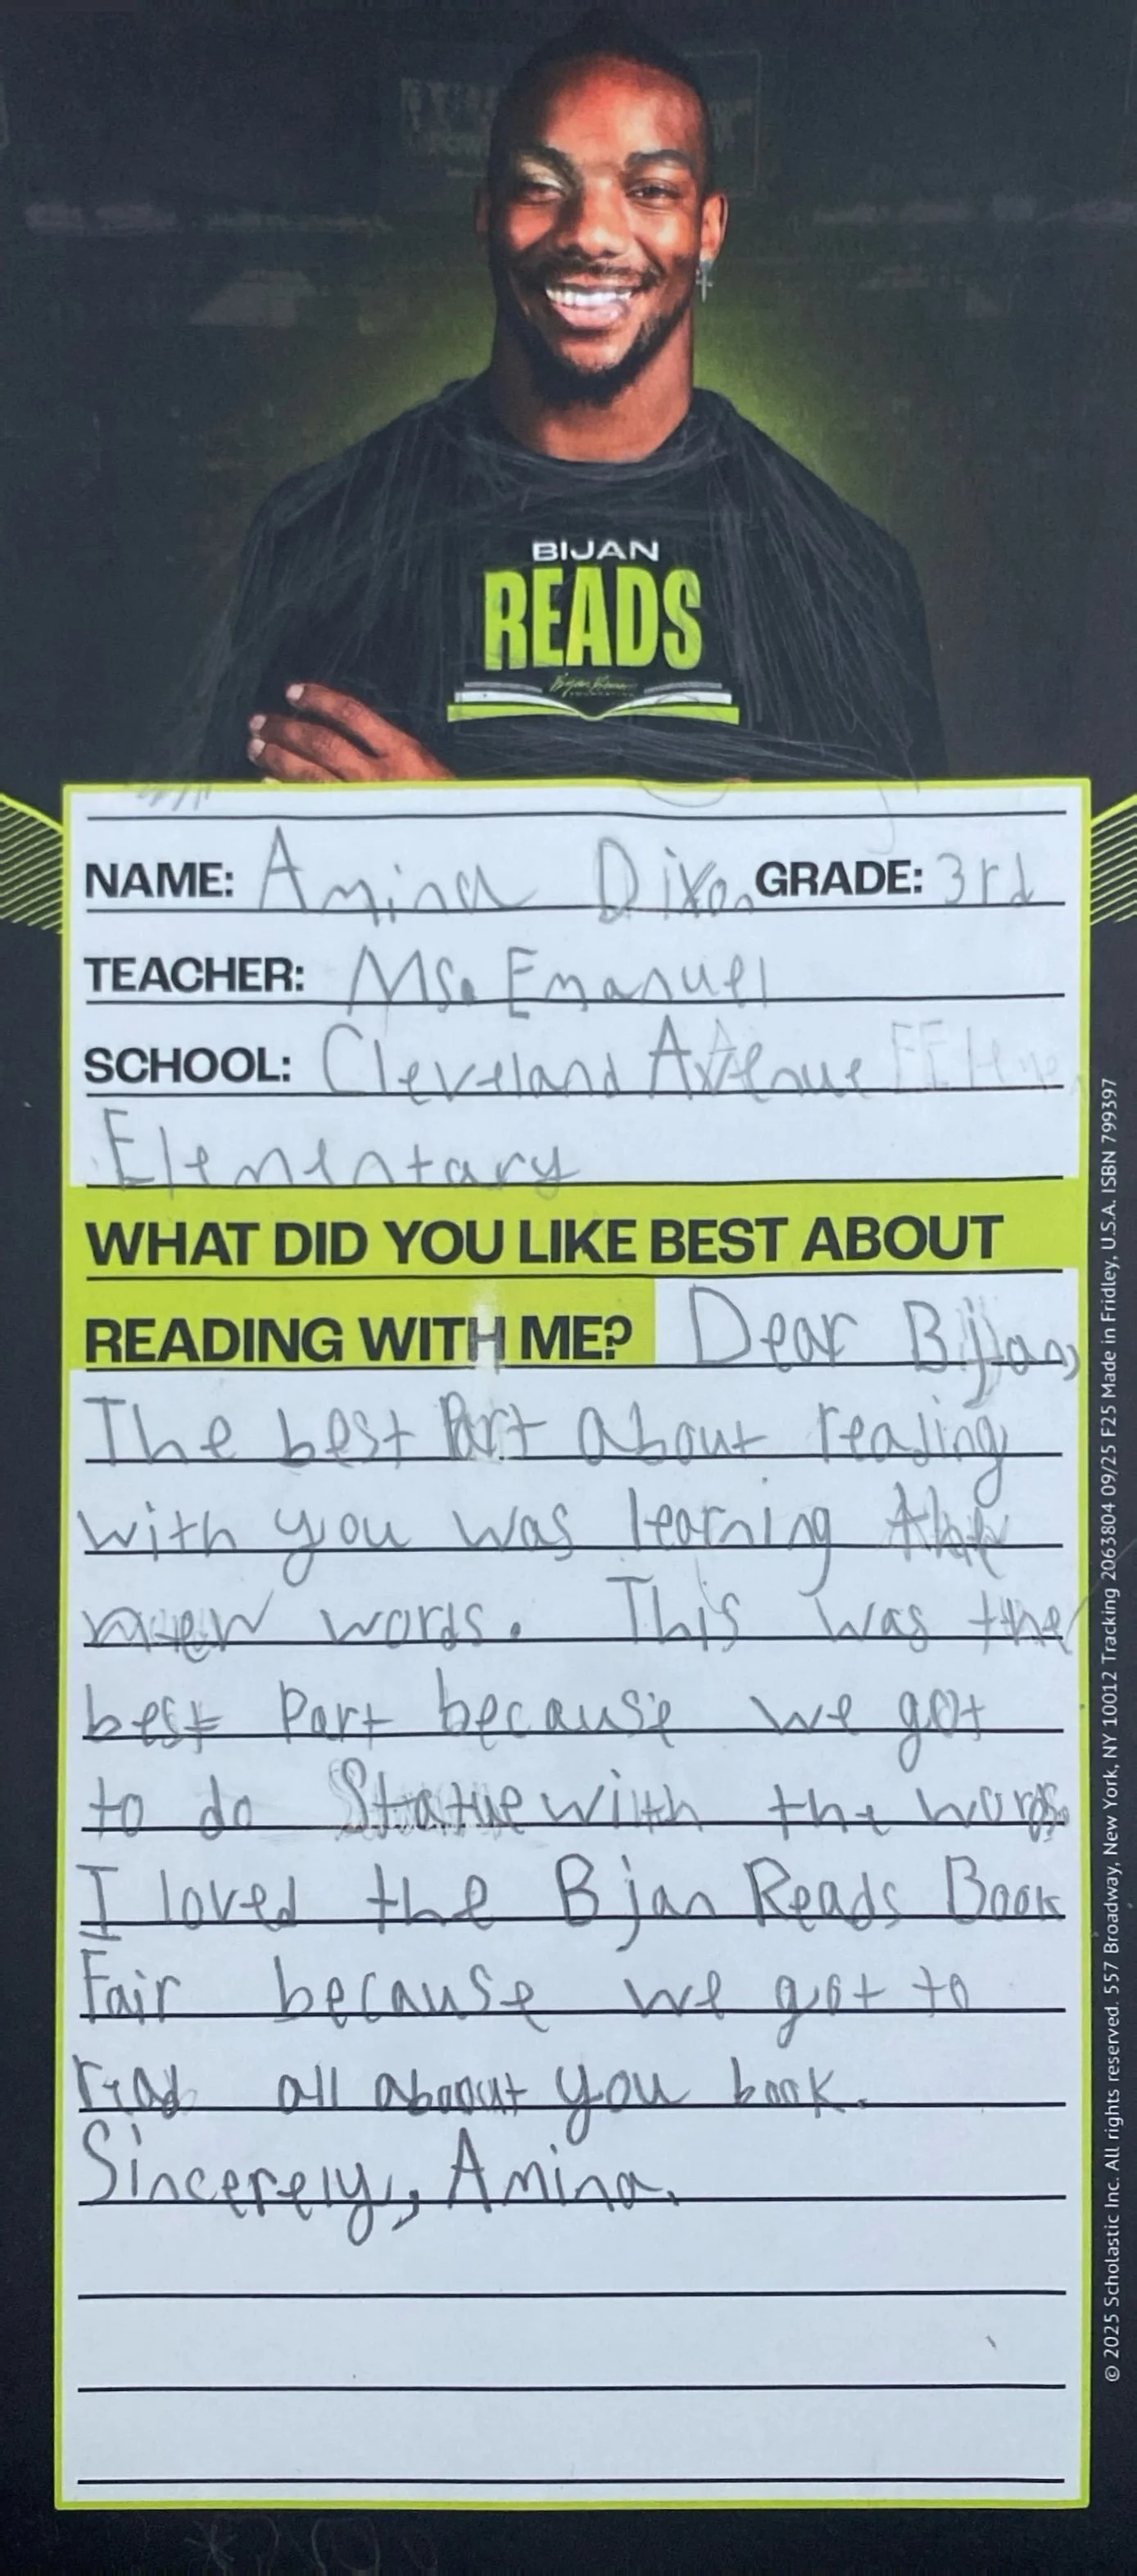 BIJAN
READS
NAME: Amina Dixon GRADE: 3rd
TEACHER: Ms. Emanuel
SCHOOL: Cleveland Avenue
Elementary
WHAT DID YOU LIKE BEST ABOUT
READING WITH ME? Dear Bijan,
The best Part about reading
with you was learning
new words. This was the
best Part because we got
to do Statue with the words.
I loved the Bjan Reads Book
Fair because we got to
read all aboout you book.
Sincerely, Amina.
© 2025 Scholastic Inc. All rights reserved. 557 Broadway, New York, NY 10012 Tracking 2063804 09/25 F25 Made in Fridley, U.S.A. ISBN 799397